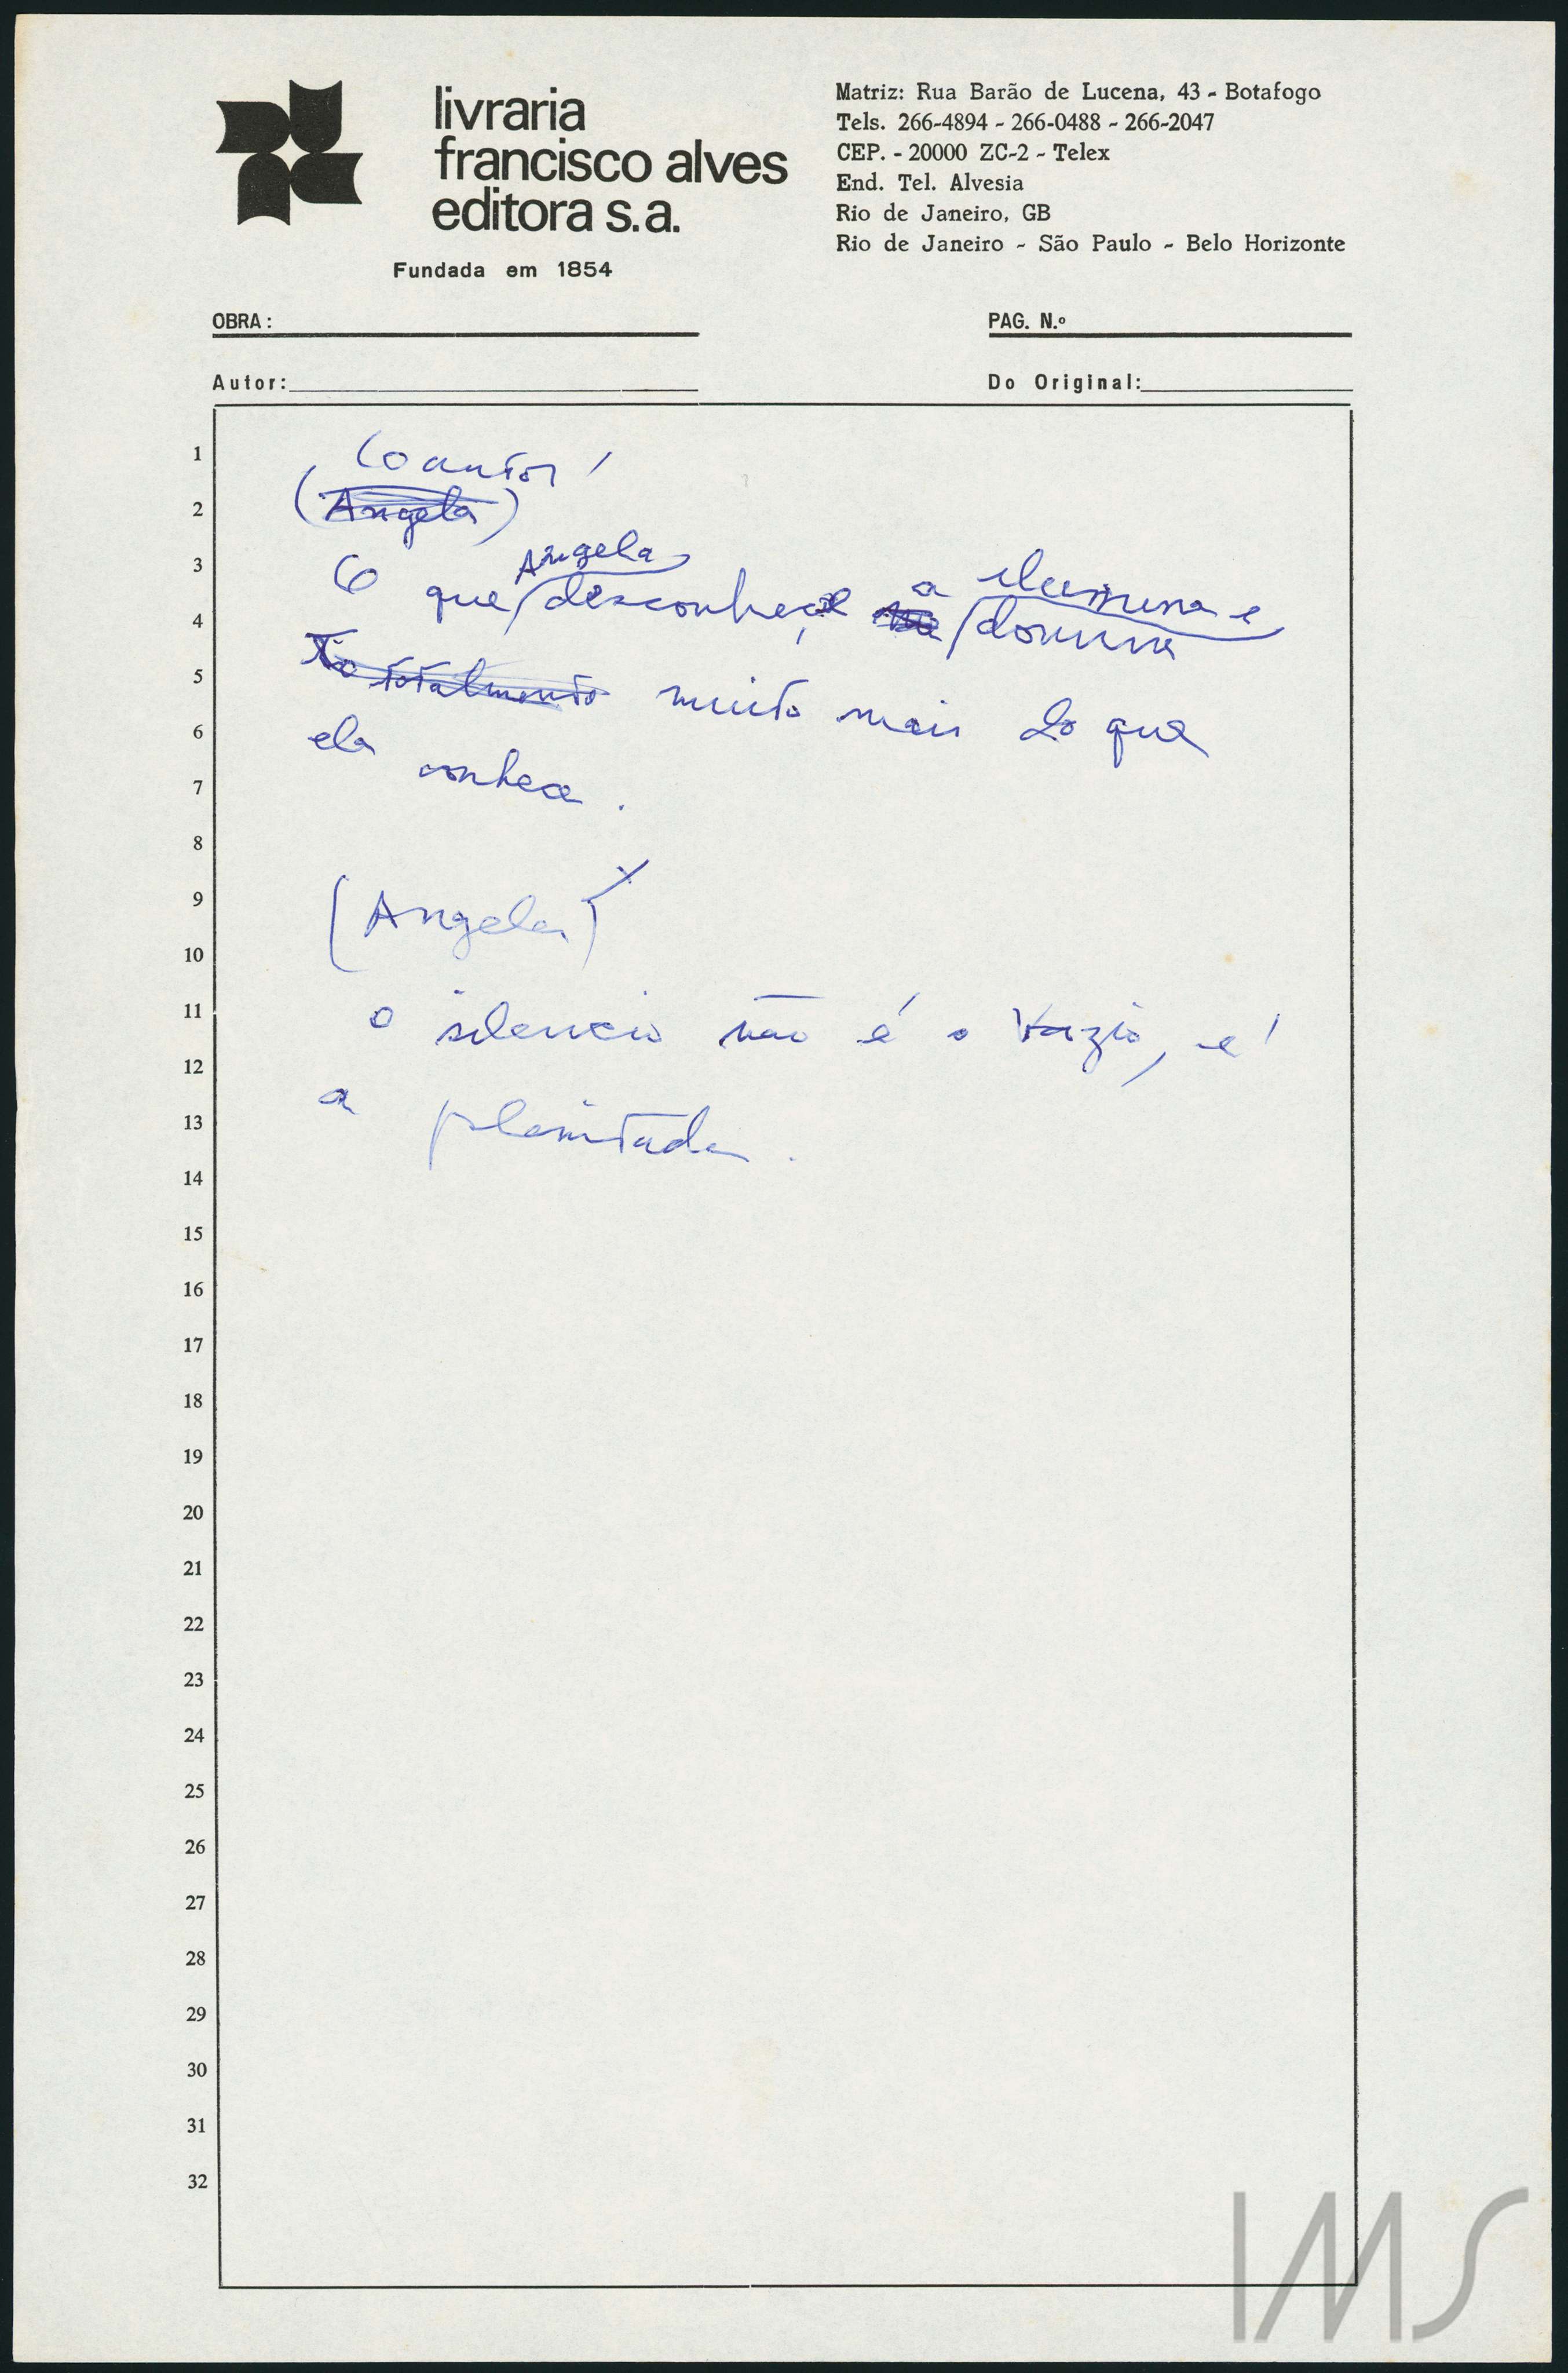 livraria
francisco alves
editora s.a.
Fundada em 1854
Matriz: Rua Barão de Lucena, 43 - Botafogo
Tels. 266-4894 - 266-0488 - 266-2047
CEP. - 20000 ZC-2 - Telex
End. Tel. Alvesia
Rio de Janeiro, GB
Rio de Janeiro - São Paulo - Belo Horizonte
OBRA:
PAG. N.º
Autor:
Do Original:
1
2
3
4
5
6
7
8
9
10
11
12
13
14
15
16
17
18
19
20
21
22
23
24
25
26
27
28
29
30
31
32
(o autor)
(Angela)
Angela
a ilumina e
O que desconhece domina
totalmente muito mais do que
ela conhece.
(Angela)
o silencio não é o vazio, é
a plenitude.
IMS